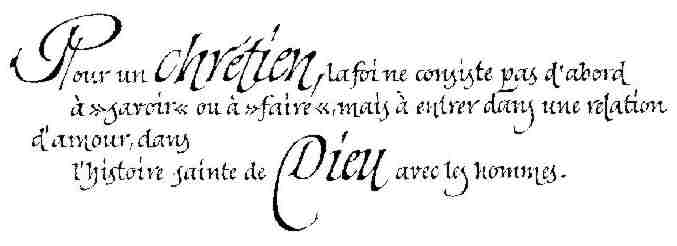 Pour un chrétien, la foi ne consiste pas d'abord
à »savoir« ou à »faire«, mais à entrer dans une relation
d'amour, dans
l'histoire sainte de Dieu avec les hommes.